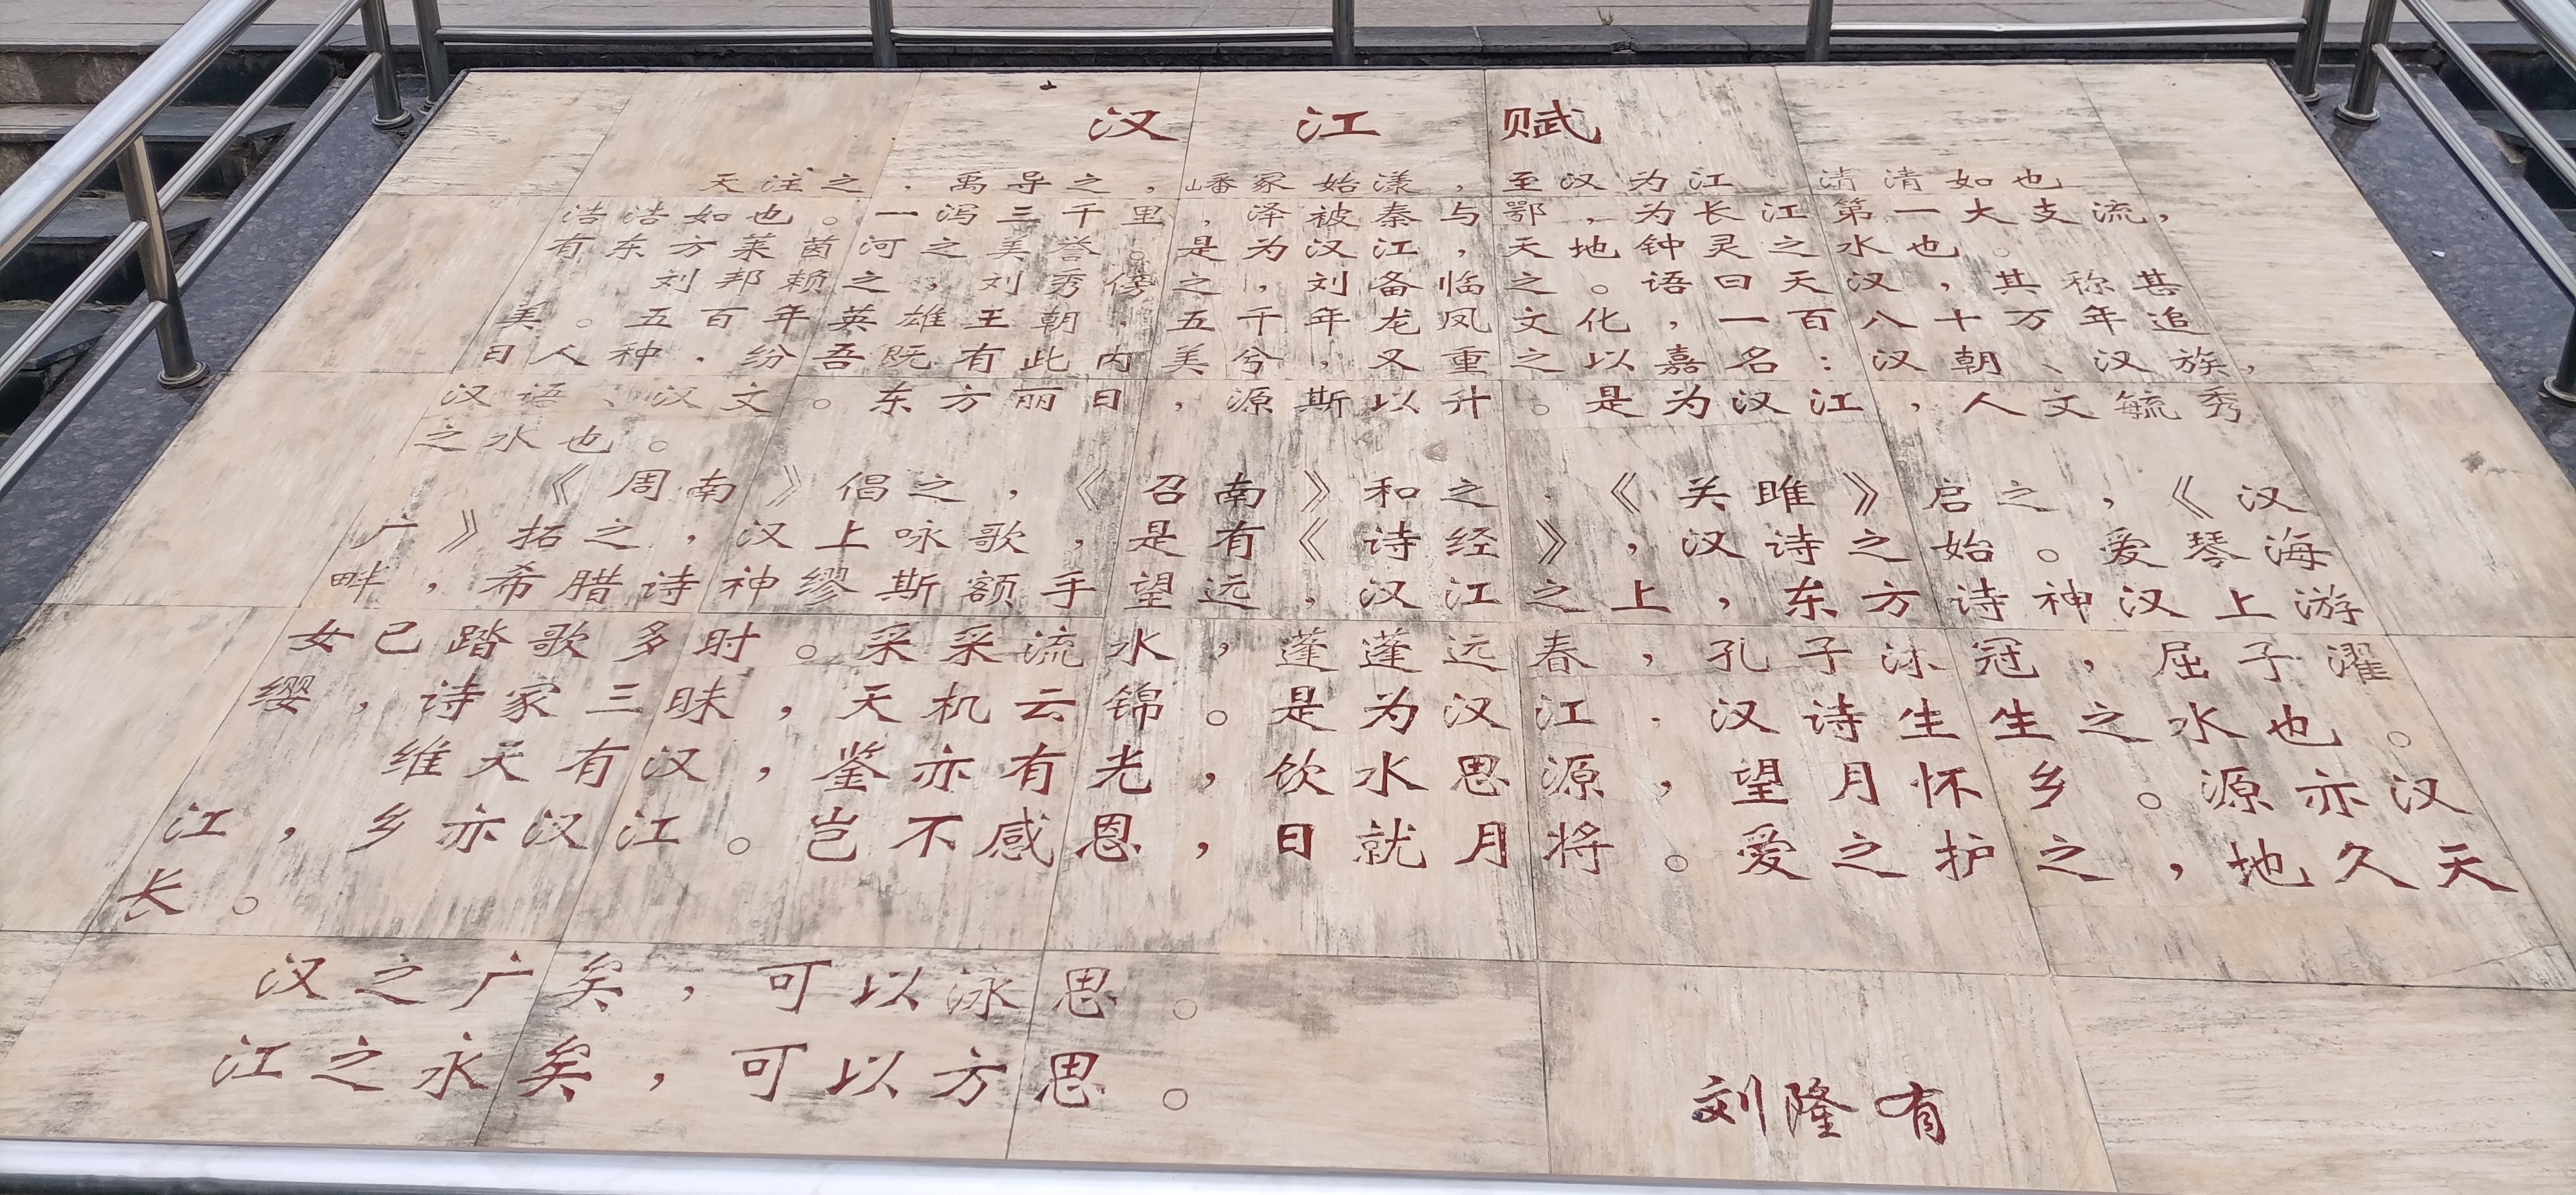 汉江赋
天注之，禹导之，嶓冢始漾，至汉为江，清清如也
洁洁如也。一泻三千里，泽被秦与鄂，为长江第一大支流，
有东方莱茵河之美誉。是为汉江，天地钟灵之水也。
刘邦赖之，刘秀傍之，刘备临之。语曰天汉，其称甚
美。五百年英雄王朝，五千年龙凤文化，一百八十万年追
日人种，纷吾既有此内美兮，又重之以嘉名：汉朝、汉族，
汉语、汉文。东方丽日，源斯以升。是为汉江，人文毓秀
之水也。
《周南》倡之，《召南》和之，《关雎》启之，《汉
广》拓之，汉上咏歌，是有《诗经》，汉诗之始。爱琴海
畔，希腊诗神缪斯额手望远，汉江之上，东方诗神汉上游
女已踏歌多时。采采流水，蓬蓬远春，孔子沐冠，屈子濯
缨，诗家三昧，天机云锦。是为汉江，汉诗生生之水也。
维天有汉，鉴亦有光，饮水思源，望月怀乡。源亦汉
江，乡亦汉江。岂不感恩，日就月将。爱之护之，地久天
长。
汉之广矣，可以泳思。
江之永矣，可以方思。
刘隆有